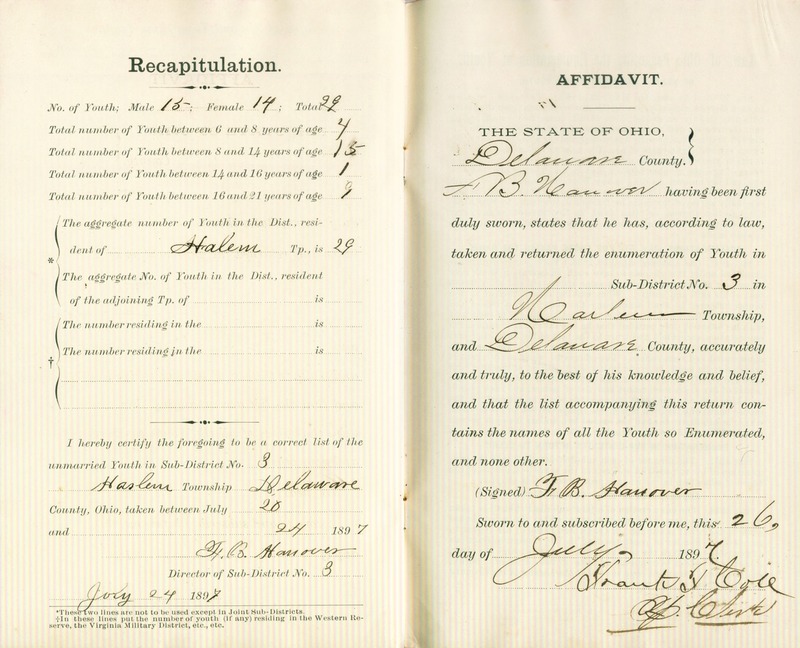 Recapitulation.
No. of Youth; Male 15; Female 14; Total 29
Total number of Youth between 6 and 8 years of age 4
Total number of Youth between 8 and 14 years of age 15
Total number of Youth between 14 and 16 years of age 1
Total number of Youth between 16 and 21 years of age 9
The aggregate number of Youth in the Dist., resi-
* dent of Halem Tp., is 29
The aggregate No. of Youth in the Dist., resident
of the adjoining Tp. of is
The number residing in the is
† The number residing in the is
I hereby certify the foregoing to be a correct list of the
unmarried Youth in Sub-District No. 3
Harlem Township Delaware
County, Ohio, taken between July 20
and 24 1897
F. B. Hanover
Director of Sub-District No. 3
July 24 1897
*These two lines are not to be used except in Joint Sub-Districts.
†In these lines put the number of youth (if any) residing in the Western Re-
serve, the Virginia Military District, etc., etc.
AFFIDAVIT.
THE STATE OF OHIO,
Delaware County.
F B. Hanover having been first
duly sworn, states that he has, according to law,
taken and returned the enumeration of Youth in
Sub-District No. 3 in
Harlem Township,
and Delaware County, accurately
and truly, to the best of his knowledge and belief,
and that the list accompanying this return con-
tains the names of all the Youth so Enumerated,
and none other.
(Signed) F. B. Hanover
Sworn to and subscribed before me, this 26,
day of July 1897.
Frank F Cole
Clerk